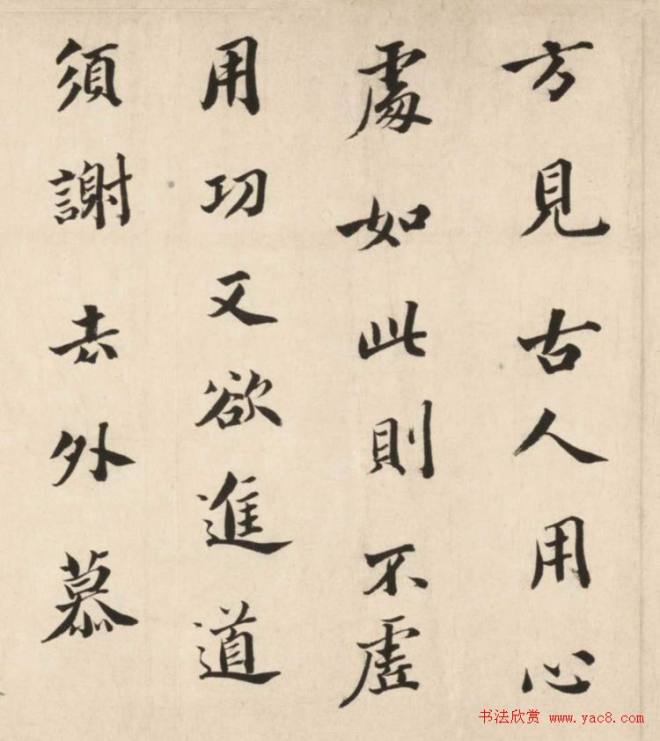 方見古人用心
處如此則不虛
用功又欲進道
須謝去外慕
书法欣赏 www.yac8.com